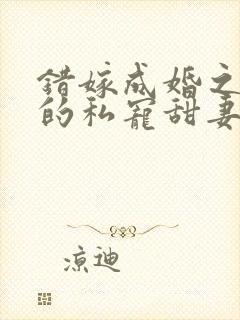 错嫁成婚之
的私宠甜妻
凉迪